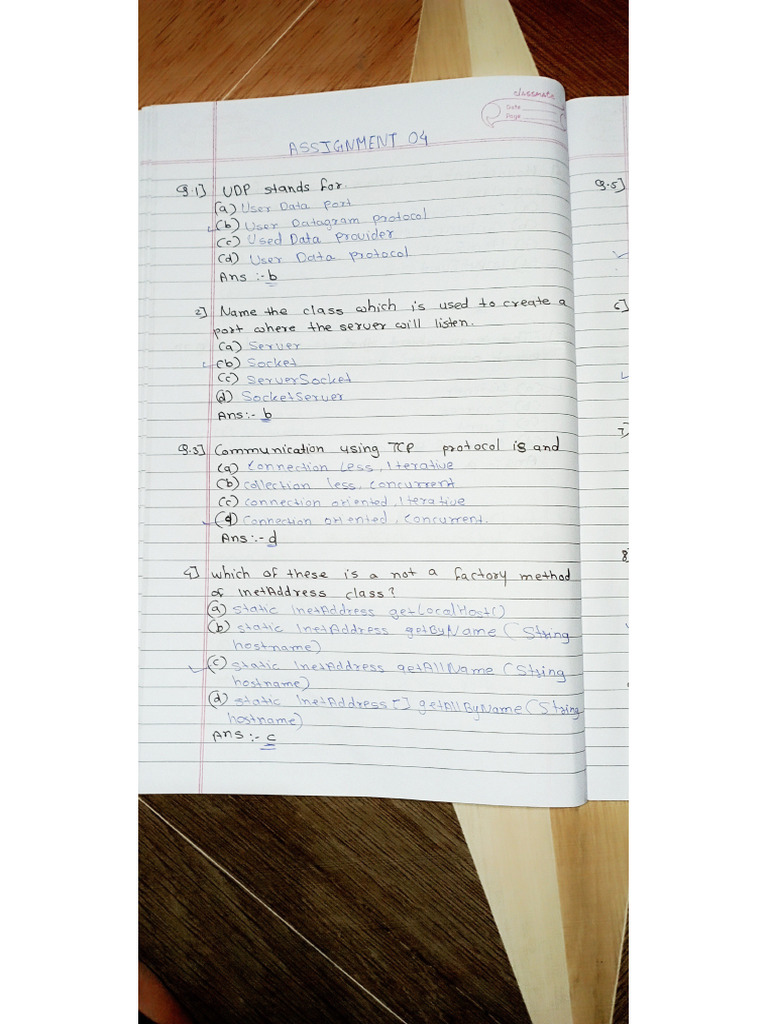 classmate
Date
Page
ASSIGNMENT 04
Q.1] UDP stands for.
(a) User Data Port
(b) User Datagram protocol
(c) Used Data Provider
(d) User Data Protocol
Ans :- b
2] Name the class which is used to create a
port where the server will listen.
(a) Server
(b) Socket
(c) ServerSocket
(d) SocketServer
Ans:- b
Q.3] Communication using TCP protocol is and
(a) Connection less, Iterative
(b) collection less, concurrent
(c) connection oriented, Iterative
(d) Connection oriented, concurrent.
Ans:- d
4] which of these is a not a factory method
of InetAddress class?
(a) static InetAddress getLocalHost()
(b) static InetAddress getByName (String
hostname)
(c) static InetAddress getAllName (String
hostname)
(d) static InetAddress[] getAllByName (String
hostname)
Ans :- c
Q.5]
6]
7]
8]